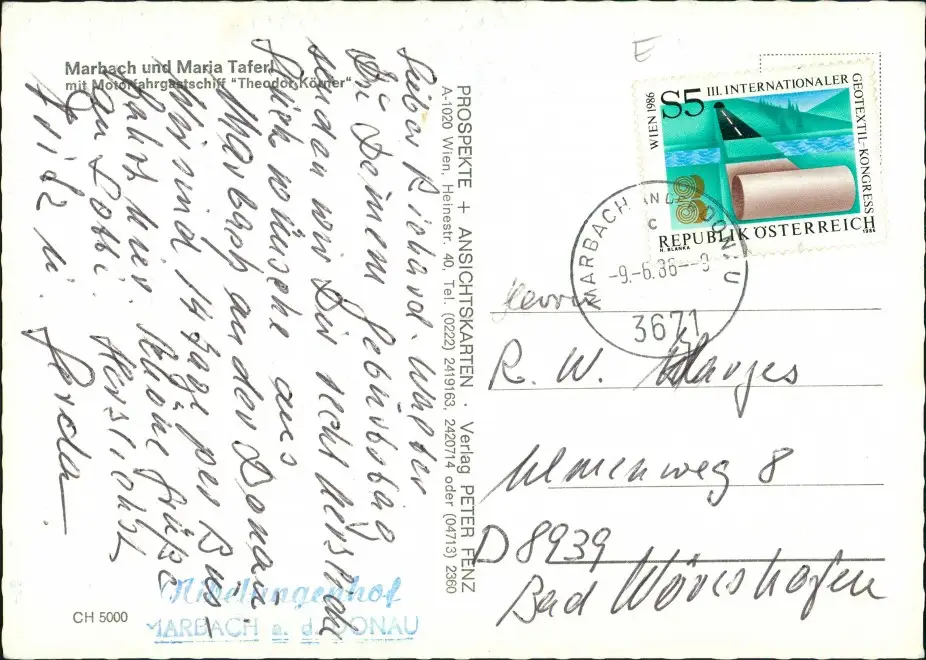 Marbach und Maria Taferl
mit Motorfahrgastschiff "Theodor Körner"
Lieber Richard-Walter
Zu Deinem Geburtstag
senden wir Dir recht herzliche
Glückwünsche aus
Marbach an der Donau
Wir sind 14 Tage per Bus
halt hier. Schöne Grüße
an Lotti. Herzlichst
u. Gerda
PROSPEKTE + ANSICHTSKARTEN · Verlag PETER FENZ
A-1020 Wien, Heinestr. 40, Tel. (0222) 2419163, 2420714 oder (04713) 2360
E
WIEN 1986
S5
III. INTERNATIONALER
GEOTEXTIL-KONGRESS
REPUBLIK ÖSTERREICH
H. BLANKA
1986
MARBACH AN DER DONAU
C
-9.-6.86--9
3671
Herrn
R. W. Marges
Ulmenweg 8
D 8939
Bad Wörishofen
Nibelungenhof
MARBACH a. d. DONAU
CH 5000